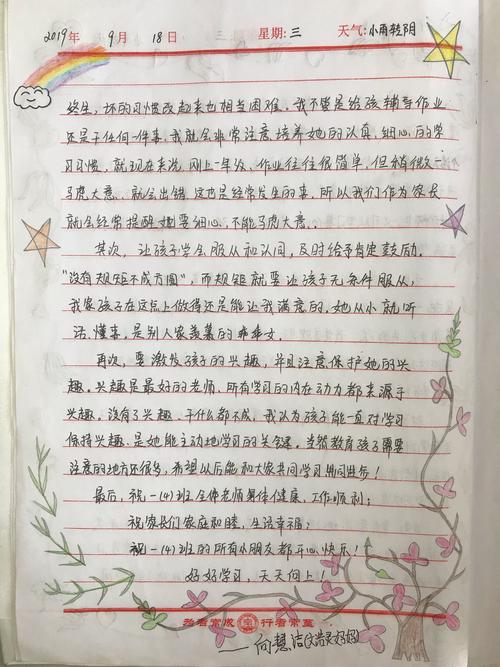 2019年 9月 18日 星期:三 天气:小雨轻阴
终生,坏的习惯改起来也相当困难,我不管是给孩子辅导作业
还是干任何一件事,我就会非常注意培养她的认真,细心的学
习习惯,就现在来说,刚上一年级,作业往往很简单,但稍微一
马虎大意,就会出错,这也是经常发生的事,所以我们作为家长
就会经常提醒她要细心,不能马虎大意。
其次,让孩子学会服从和认同,及时给予肯定鼓励。
"没有规矩不成方圆",而规矩就要让孩子无条件服从,
我家孩子在这点上做得还是能让我满意的,她从小就听
话,懂事,是别人家羡慕的乖乖女。
再次,要激发孩子的兴趣,并且注意保护她的兴
趣。兴趣是最好的老师,所有学习的内在动力都来源于
兴趣。没有了兴趣,干什么都不成,我认为孩子能一直对学习
保持兴趣,是她能主动地学习的关键。当然教育孩子需要
注意的地方还很多,希望以后能和大家共同学习共同进步!
最后,祝一(4)班全体老师身体健康,工作顺利;
祝家长们家庭和睦,生活幸福;
祝一(4)班的所有小朋友都开心快乐!
好好学习,天天向上!
为者常成 行者常至
——向慧洁(妈妈)